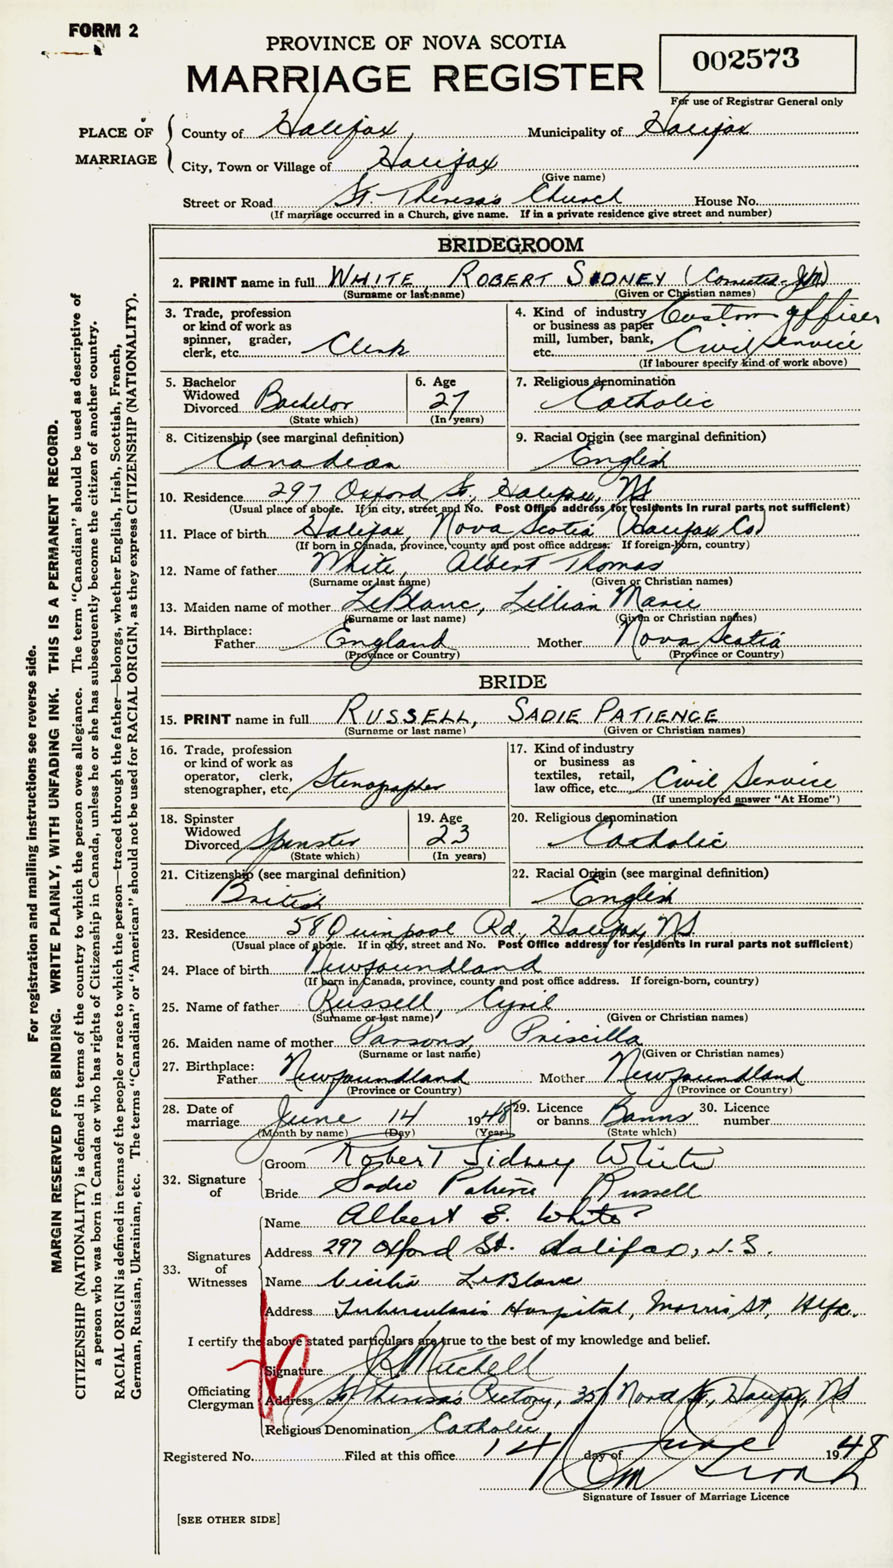 FORM 2
PROVINCE OF NOVA SCOTIA
MARRIAGE REGISTER
002573
For use of Registrar General only
PLACE OF MARRIAGE
County of Halifax Municipality of Halifax
City, Town or Village of Halifax
(Give name)
Street or Road St. Theresa's Church House No.
(If marriage occurred in a Church, give name. If in a private residence give street and number)
BRIDEGROOM
2. PRINT name in full WHITE, ROBERT SIDNEY (Corrected
(Surname or last name) (Given or Christian names)
3. Trade, profession or kind of work as spinner, grader, clerk, etc. Clerk
4. Kind of industry or business as paper mill, lumber, bank, etc. Custom Officer Civil Service
(If labourer specify kind of work above)
5. Bachelor Widowed Divorced Bachelor
(State which)
6. Age 27
(In years)
7. Religious denomination
Catholic
8. Citizenship (see marginal definition)
Canadian
9. Racial Origin (see marginal definition)
English
10. Residence 297 Oxford St., Halifax, NS
(Usual place of abode. If in city, street and No. Post Office address for residents in rural parts not sufficient)
11. Place of birth Halifax, Nova Scotia (Halifax Co.)
(If born in Canada, province, county and post office address. If foreign-born, country)
12. Name of father White, Albert Thomas
(Surname or last name) (Given or Christian names)
13. Maiden name of mother LeBlanc, Lillian Marie
(Surname or last name) (Given or Christian names)
14. Birthplace: Father England Mother Nova Scotia
(Province or Country) (Province or Country)
BRIDE
15. PRINT name in full RUSSELL, SADIE PATIENCE
(Surname or last name) (Given or Christian names)
16. Trade, profession or kind of work as operator, clerk, stenographer, etc. Stenographer
17. Kind of industry or business as textiles, retail, law office, etc. Civil Service
(If unemployed answer "At Home")
18. Spinster Widowed Divorced Spinster
(State which)
19. Age 23
(In years)
20. Religious denomination
Catholic
21. Citizenship (see marginal definition)
British
22. Racial Origin (see marginal definition)
English
23. Residence 58 Quinpool Rd., Halifax, NS
(Usual place of abode. If in city, street and No. Post Office address for residents in rural parts not sufficient)
24. Place of birth Newfoundland
(If born in Canada, province, county and post office address. If foreign-born, country)
25. Name of father Russell, Cyril
(Surname or last name) (Given or Christian names)
26. Maiden name of mother Parsons, Priscilla
(Surname or last name) (Given or Christian names)
27. Birthplace: Father Newfoundland Mother Newfoundland
(Province or Country) (Province or Country)
28. Date of marriage June 14 1948 29. Licence or banns Banns 30. Licence number
(Month by name) (Day) (Year) (State which)
32. Signature of
Groom Robert Sidney White
Bride Sadie Patience Russell
33. Signatures of Witnesses
Name Albert E. White
Address 297 Oxford St. Halifax, N.S.
Name Cecilia LeBlanc
Address Tuberculosis Hospital, Morris St, Hfx.
I certify the above stated particulars are true to the best of my knowledge and belief.
Officiating Clergyman
Signature Mitchell
Address St Theresa's Rectory, 351 North St, Halifax, NS
Religious Denomination Catholic
Registered No. Filed at this office 14 day of June 1948
Signature of Issuer of Marriage Licence
[SEE OTHER SIDE]
For registration and mailing instructions see reverse side.
MARGIN RESERVED FOR BINDING. WRITE PLAINLY, WITH UNFADING INK. THIS IS A PERMANENT RECORD.
CITIZENSHIP (NATIONALITY) is defined in terms of the country to which the person owes allegiance. The term "Canadian" should be used as descriptive of
a person who was born in Canada or who has rights of Citizenship in Canada, unless he or she has subsequently become the citizen of another country.
RACIAL ORIGIN is defined in terms of the people or race to which the person—traced through the father—belongs, whether English, Irish, Scottish, French,
German, Russian, Ukrainian, etc. The terms "Canadian" or "American" should not be used for RACIAL ORIGIN, as they express CITIZENSHIP (NATIONALITY).